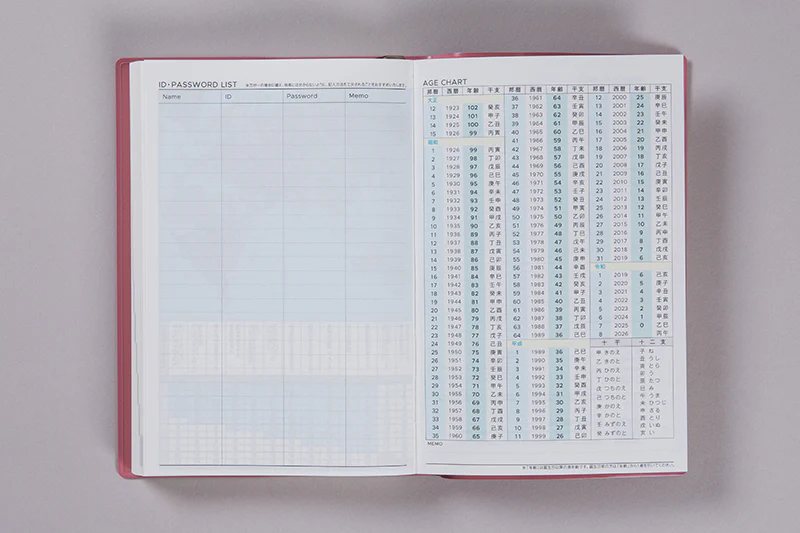 ID・PASSWORD LIST
Name ID Password Memo
AGE CHART
邦暦 西暦 年齢 干支
大正
12 1923 102 癸亥
13 1924 101 甲子
14 1925 100 乙丑
15 1926 99 丙寅
昭和
1 1926 99 丙寅
2 1927 98 丁卯
3 1928 97 戊辰
4 1929 96 己巳
5 1930 95 庚午
6 1931 94 辛未
7 1932 93 壬申
8 1933 92 癸酉
9 1934 91 甲戌
10 1935 90 乙亥
11 1936 89 丙子
12 1937 88 丁丑
13 1938 87 戊寅
14 1939 86 己卯
15 1940 85 庚辰
16 1941 84 辛巳
17 1942 83 壬午
18 1943 82 癸未
19 1944 81 甲申
20 1945 80 乙酉
21 1946 79 丙戌
22 1947 78 丁亥
23 1948 77 戊子
24 1949 76 己丑
25 1950 75 庚寅
26 1951 74 辛卯
27 1952 73 壬辰
28 1953 72 癸巳
29 1954 71 甲午
30 1955 70 乙未
31 1956 69 丙申
32 1957 68 丁酉
33 1958 67 戊戌
34 1959 66 己亥
35 1960 65 庚子
邦暦 西暦 年齢 干支
36 1961 64 辛丑
37 1962 63 壬寅
38 1963 62 癸卯
39 1964 61 甲辰
40 1965 60 乙巳
41 1966 59 丙午
42 1967 58 丁未
43 1968 57 戊申
44 1969 56 己酉
45 1970 55 庚戌
46 1971 54 辛亥
47 1972 53 壬子
48 1973 52 癸丑
49 1974 51 甲寅
50 1975 50 乙卯
51 1976 49 丙辰
52 1977 48 丁巳
53 1978 47 戊午
54 1979 46 己未
55 1980 45 庚申
56 1981 44 辛酉
57 1982 43 壬戌
58 1983 42 癸亥
59 1984 41 甲子
60 1985 40 乙丑
61 1986 39 丙寅
62 1987 38 丁卯
63 1988 37 戊辰
64 1989 36 己巳
平成
1 1989 36 己巳
2 1990 35 庚午
3 1991 34 辛未
4 1992 33 壬申
5 1993 32 癸酉
6 1994 31 甲戌
7 1995 30 乙亥
8 1996 29 丙子
9 1997 28 丁丑
10 1998 27 戊寅
11 1999 26 己卯
邦暦 西暦 年齢 干支
12 2000 25 庚辰
13 2001 24 辛巳
14 2002 23 壬午
15 2003 22 癸未
16 2004 21 甲申
17 2005 20 乙酉
18 2006 19 丙戌
19 2007 18 丁亥
20 2008 17 戊子
21 2009 16 己丑
22 2010 15 庚寅
23 2011 14 辛卯
24 2012 13 壬辰
25 2013 12 癸巳
26 2014 11 甲午
27 2015 10 乙未
28 2016 9 丙申
29 2017 8 丁酉
30 2018 7 戊戌
31 2019 6 己亥
令和
1 2019 6 己亥
2 2020 5 庚子
3 2021 4 辛丑
4 2022 3 壬寅
5 2023 2 癸卯
6 2024 1 甲辰
7 2025 0 乙巳
8 2026 丙午
十干
甲 きのえ
乙 きのと
丙 ひのえ
丁 ひのと
戊 つちのえ
己 つちのと
庚 かのえ
辛 かのと
壬 みずのえ
癸 みずのと
十二支
子 ね
丑 うし
寅 とら
卯 う
辰 たつ
巳 み
午 うま
未 ひつじ
申 さる
酉 とり
戌 いぬ
亥 い
MEMO